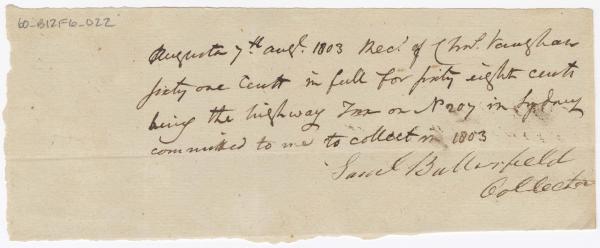 60-B12F6-022
Augusta 7th augt. 1803 Recd of Chs. Vaughan
sixty one Cents in full for sixty eight cents
being the highway Tax on No 207 in Sydney
committed to me to collect in 1803
Saml Butterfield
Collector